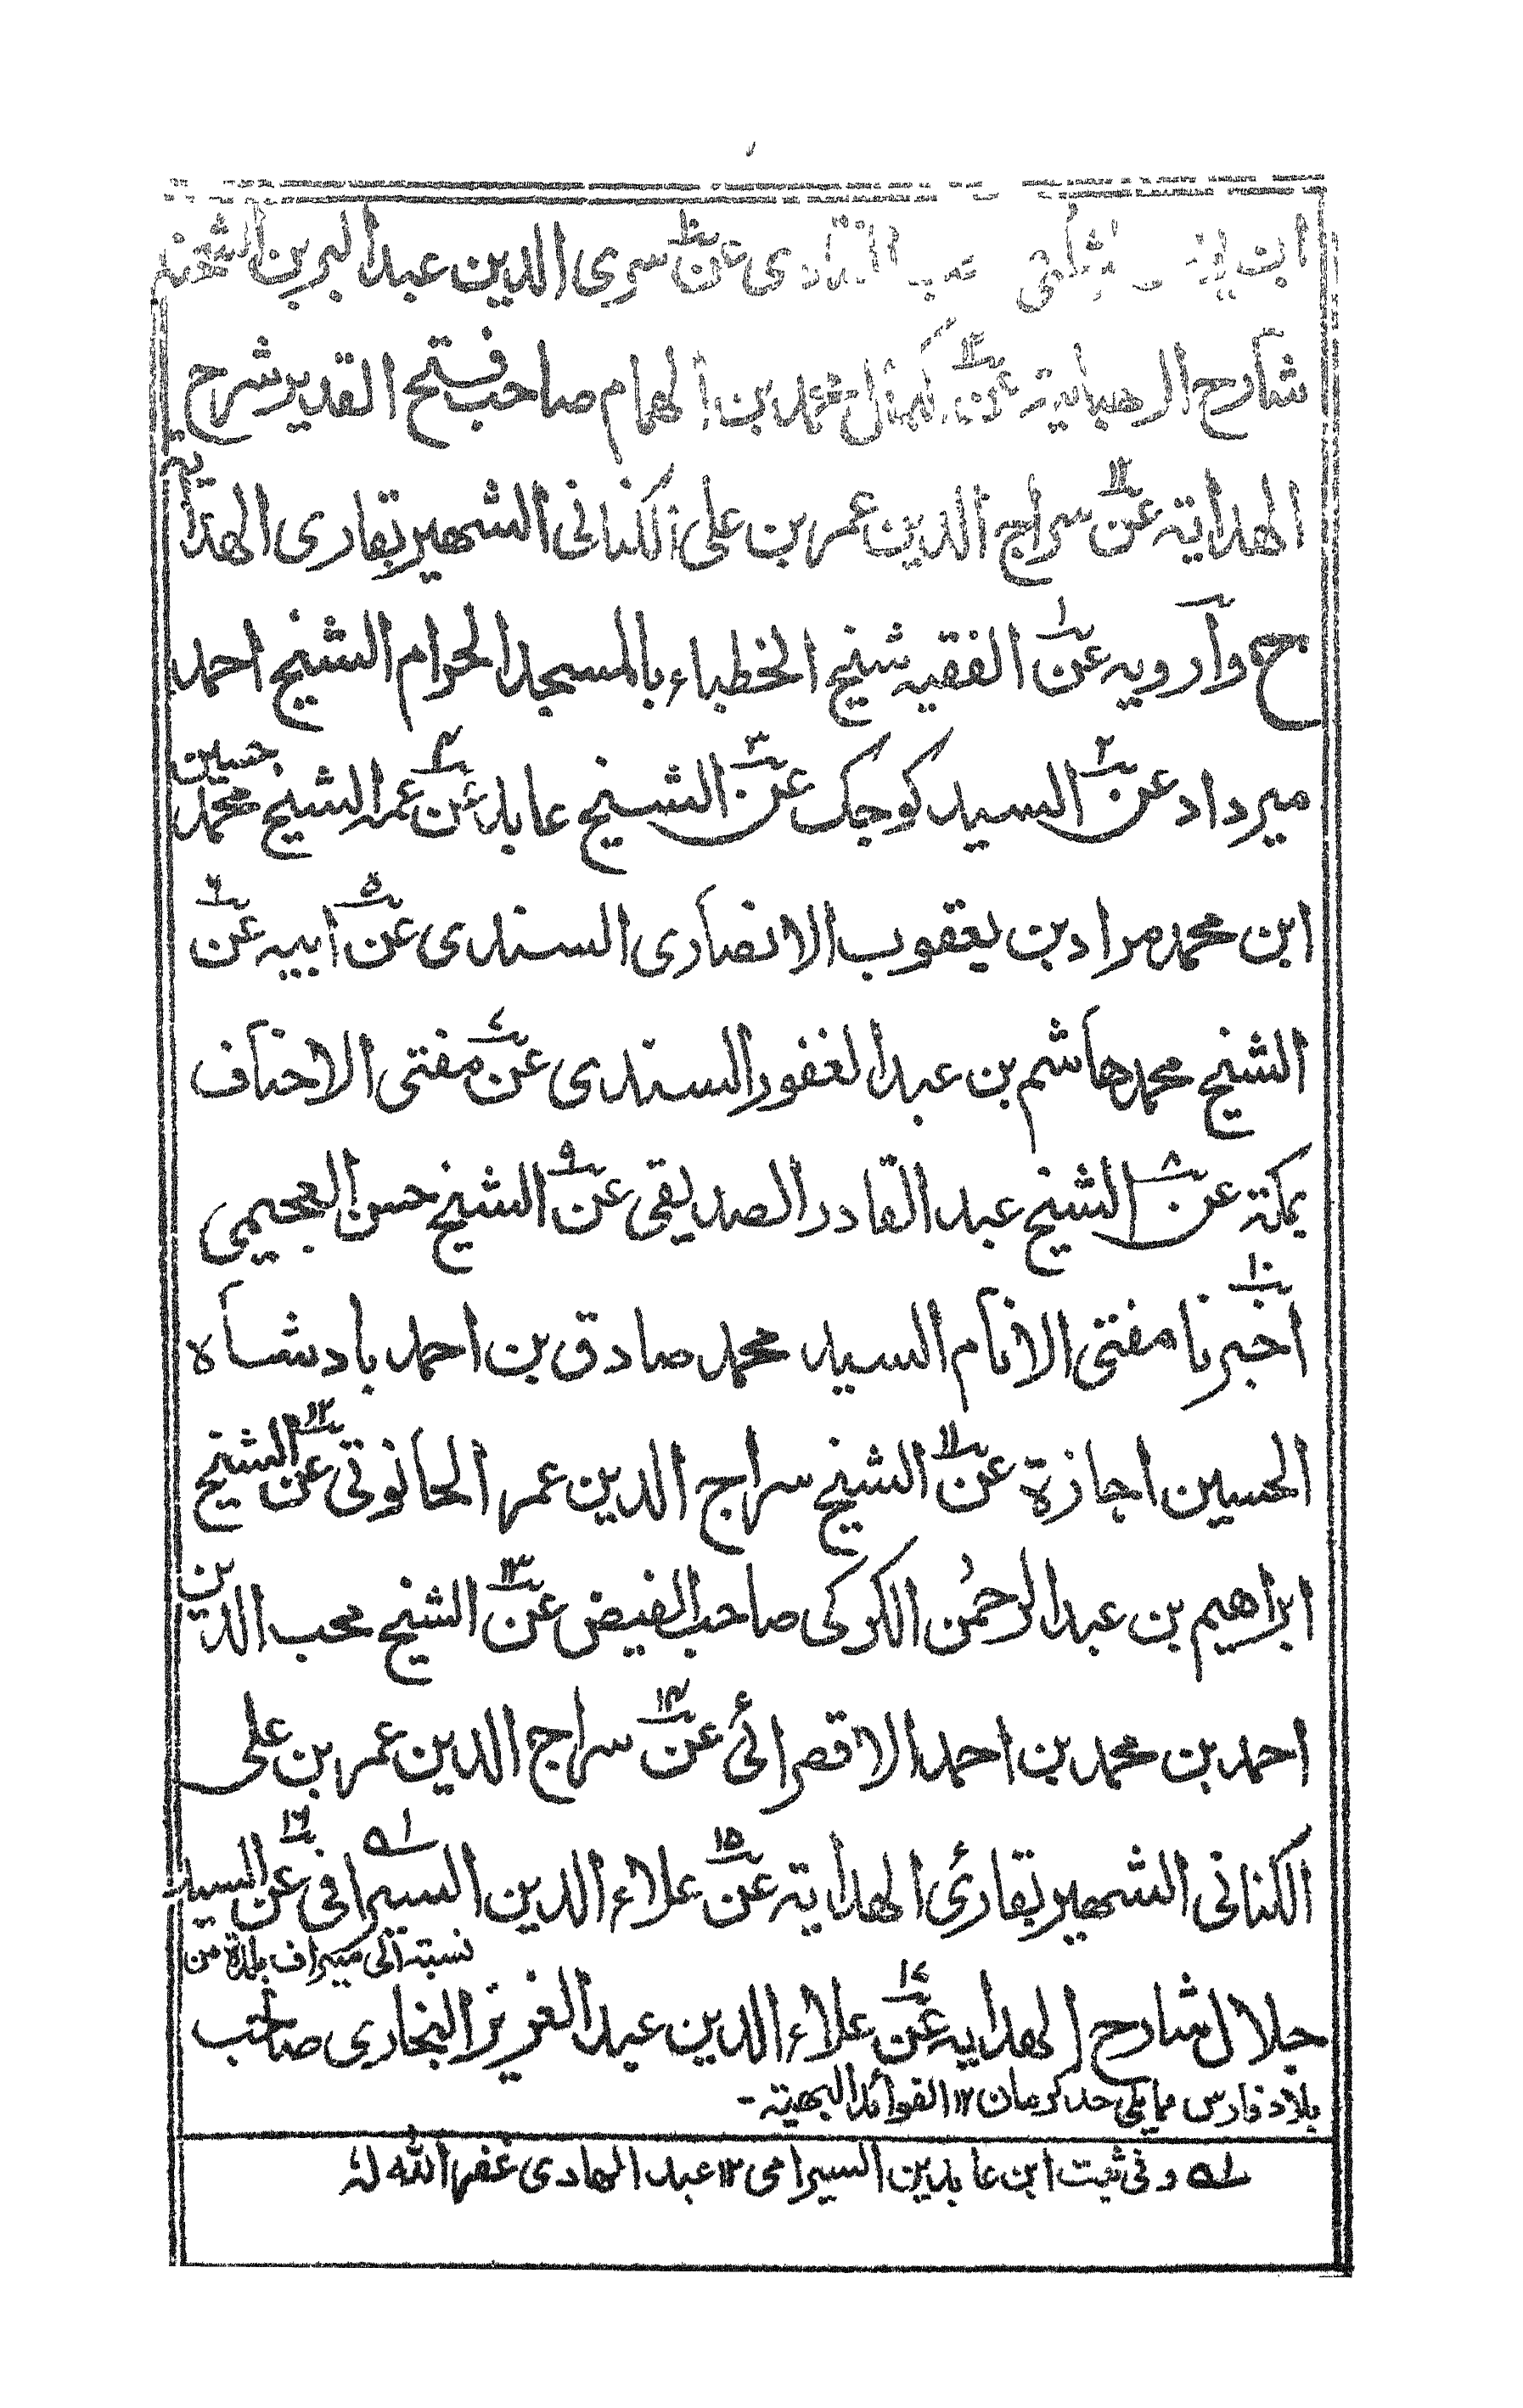 عن سرى الدين عبد البر بن الشحنه
شارح الوهبانية عن الكمال محمد بن الهمام صاحب فتح القدير شرح
الهداية عن ١٢ سراج الدين عمر بن على الكنانى الشهير بقارى الهداية
ح وارويه عن ١ الفقيه شيخ الخطباء بالمسجد الحرام الشيخ احمد
ميرداد عن ٢ السيد كوجك عن ٣ الشيخ عابد عن ٤ عمه الشيخ محمد حسين
ابن محمد مراد بن يعقوب الانصارى السندى عن ٥ ابيه عن ٦
الشيخ محمد هاشم بن عبد الغفور السندى عن ٧ مفتى الاحناف
بمكة عن ٨ الشيخ عبد القادر الصديقى عن ٩ الشيخ حسن العجيمى
١٠ اخبرنا مفتى الانام السيد محمد صادق بن احمد بادشاه
الحسين اجازة عن ١١ الشيخ سراج الدين عمر الحانوتى عن ١٢ الشيخ
ابراهيم بن عبد الرحمن الكركى صاحب الفيض عن ١٣ الشيخ محب الدين
احمد بن محمد بن احمد الاقصرائى عن ١٤ سراج الدين عمر بن على
الكنانى الشهير بقارئ الهداية عن ١٥ علاء الدين السيرافى عن ١٦ السيد
نسبة الى سيراف بلدة من
جلال شارح الهدايه عن ١٧ علاء الدين عبد العزيز البخارى صاحب
بلاد فارس مما يلى حد كرمان ١٢ الفوائد البهية -
له وفى ثبت ابن عابدين السيرامى ١٢ عبد الهادى غفر الله له